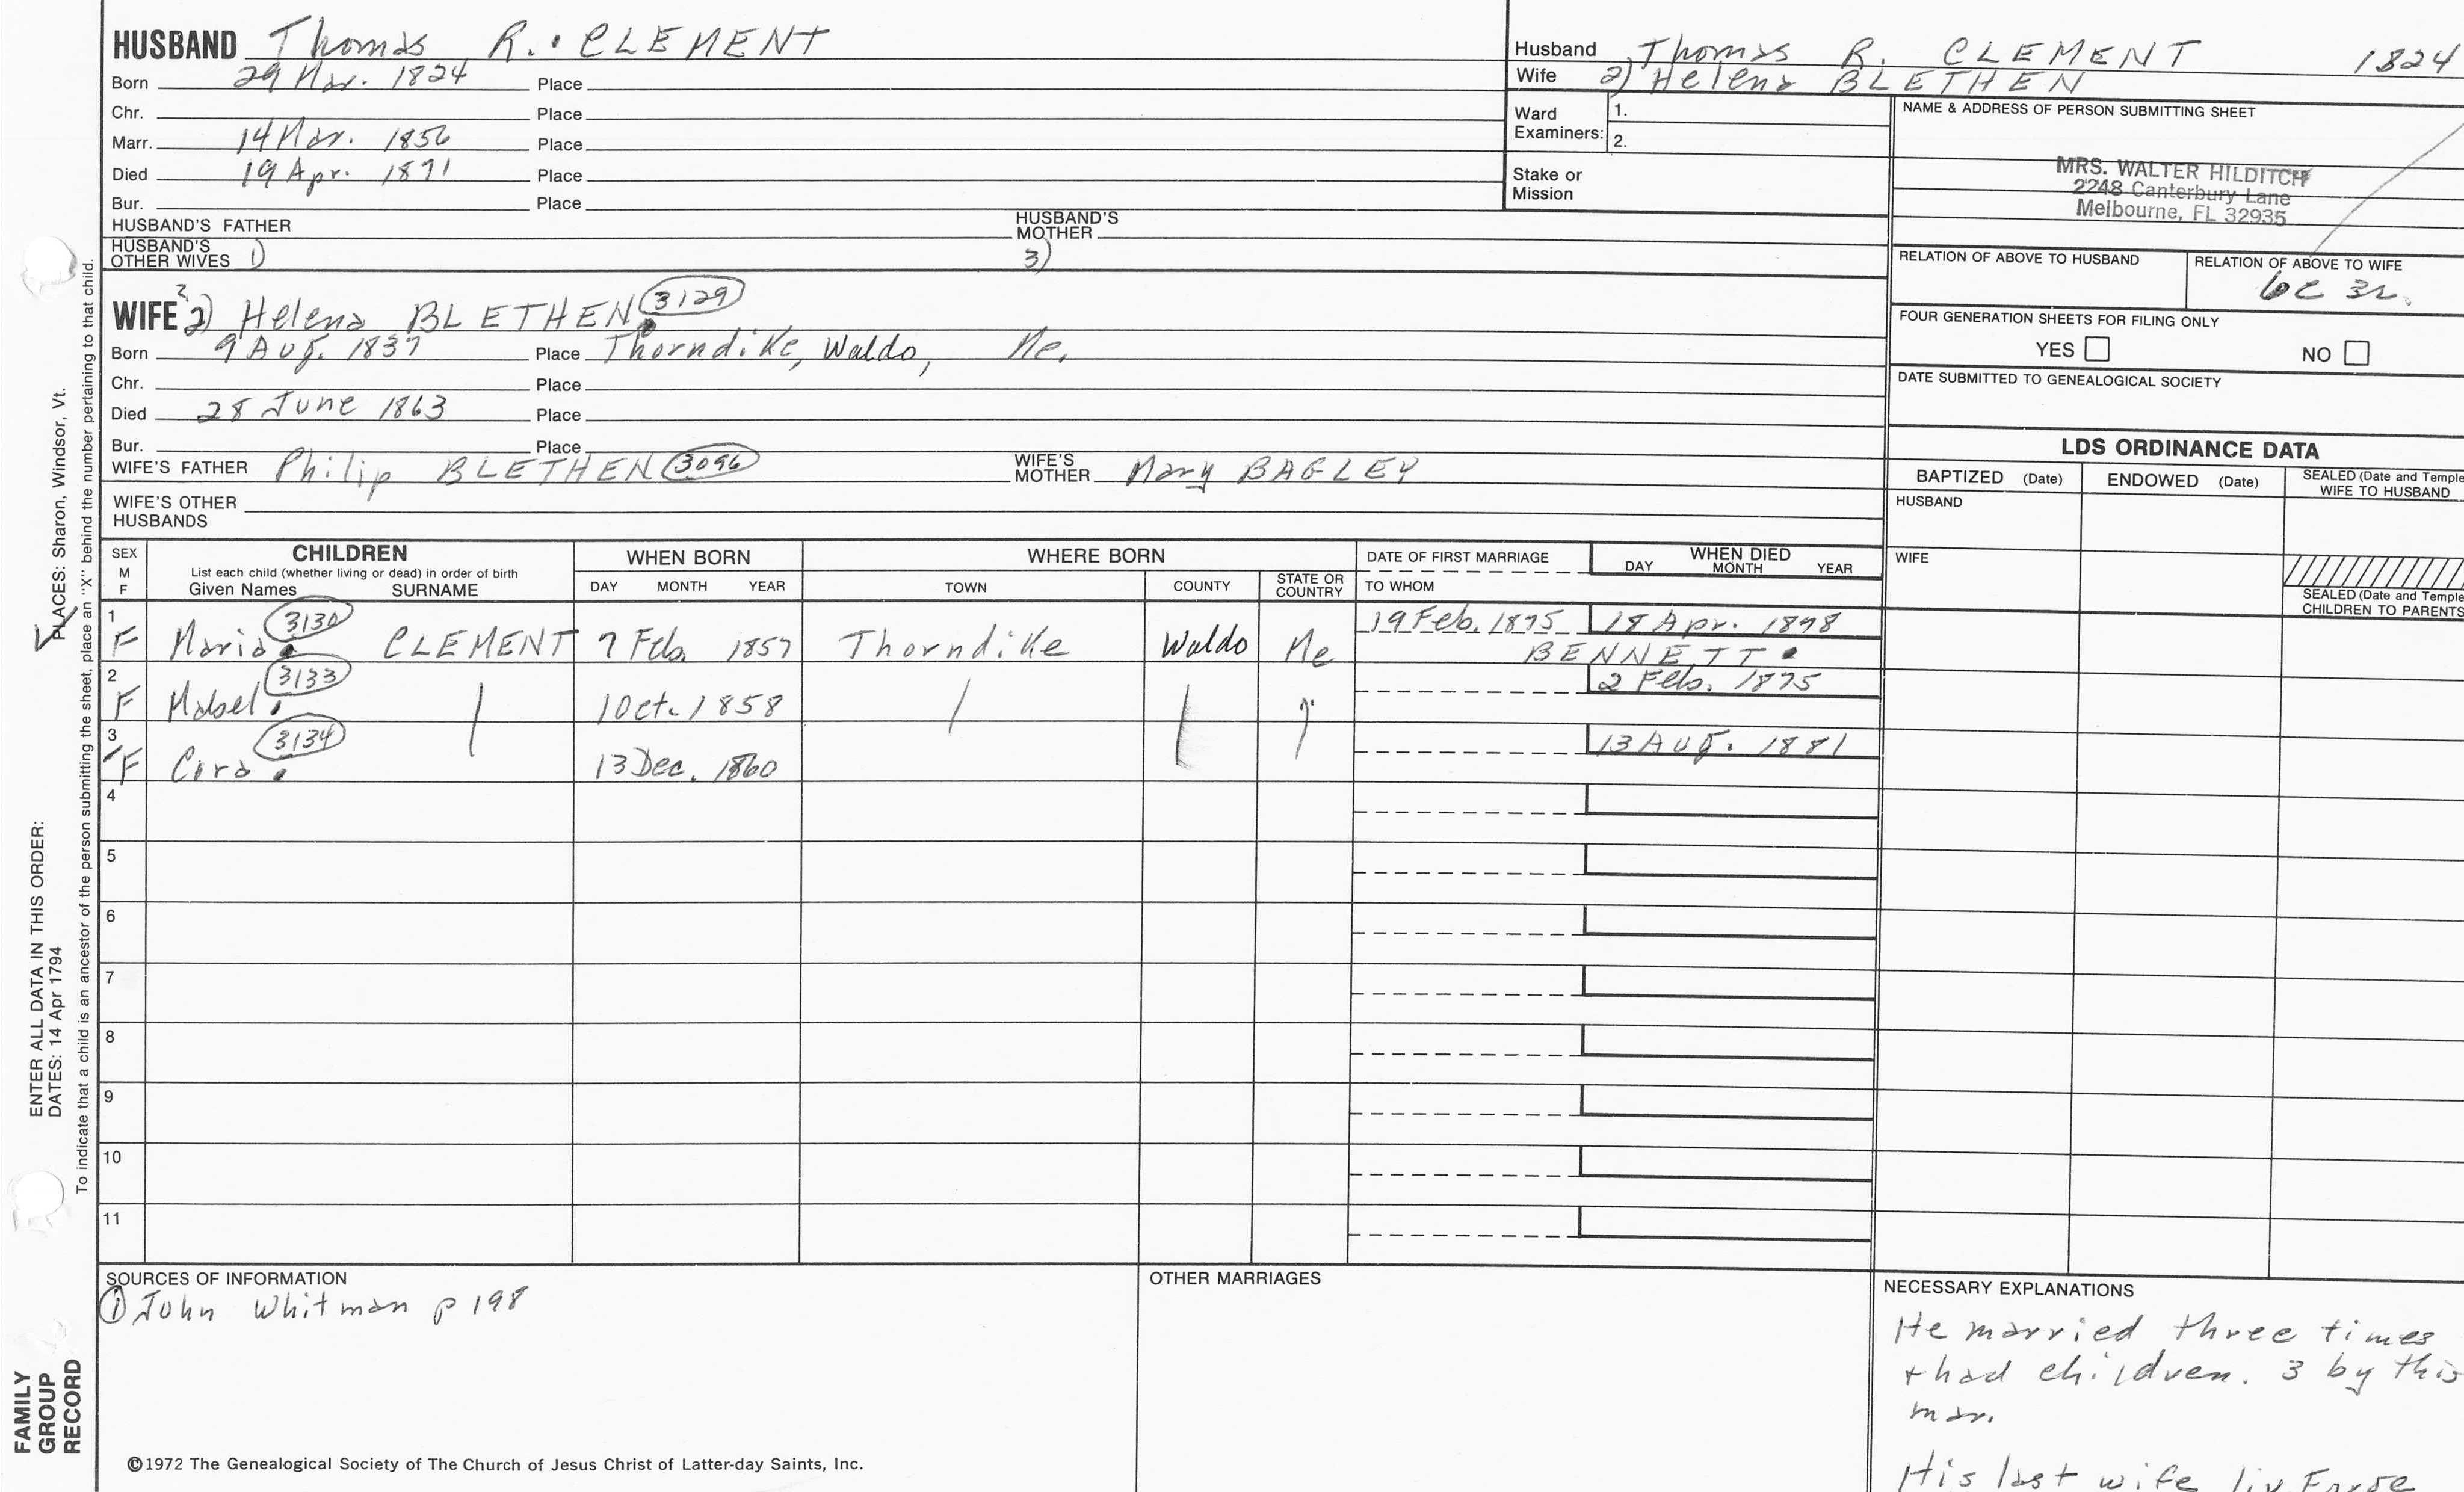 HUSBAND Thomas R. CLEMENT
Born 29 Mar. 1824 Place
Chr. Place
Marr. 14 Mar. 1856 Place
Died 19 Apr. 1891 Place
Bur. Place
HUSBAND'S FATHER HUSBAND'S MOTHER
HUSBAND'S OTHER WIVES 1) 3)
WIFE 2) Helena BLETHEN 3129
Born 9 Aug. 1837 Place Thorndike, Waldo, Me.
Chr. Place
Died 28 June 1863 Place
Bur. Place
WIFE'S FATHER Philip BLETHEN 3096 WIFE'S MOTHER Mary BAGLEY
WIFE'S OTHER HUSBANDS
Husband Thomas R. CLEMENT 1824
Wife 2) Helena BLETHEN
Ward Examiners: 1.
2.
Stake or Mission
NAME & ADDRESS OF PERSON SUBMITTING SHEET
MRS. WALTER HILDITCH
2248 Canterbury Lane
Melbourne, FL 32935
RELATION OF ABOVE TO HUSBAND RELATION OF ABOVE TO WIFE
6c 3r.
FOUR GENERATION SHEETS FOR FILING ONLY
YES NO
DATE SUBMITTED TO GENEALOGICAL SOCIETY
LDS ORDINANCE DATA
BAPTIZED (Date) ENDOWED (Date) SEALED (Date and Temple
WIFE TO HUSBAND
HUSBAND
WIFE
SEALED (Date and Temple
CHILDREN TO PARENTS
SEX M F CHILDREN WHEN BORN WHERE BORN DATE OF FIRST MARRIAGE WHEN DIED
List each child (whether living or dead) in order of birth
Given Names SURNAME DAY MONTH YEAR TOWN COUNTY STATE OR COUNTRY TO WHOM DAY MONTH YEAR
1 F Maria 3130 CLEMENT 7 Feb. 1857 Thorndike Waldo Me 19 Feb. 1875 18 Apr. 1898
BENNETT
2 F Mabel 3133 1 Oct. 1858 2 Feb. 1875
3 F Cora 3134 13 Dec. 1860 13 Aug. 1881
4
5
6
7
8
9
10
11
SOURCES OF INFORMATION
① John Whitman p 198
OTHER MARRIAGES
NECESSARY EXPLANATIONS
He married three times
+ had children. 3 by this
mar.
His last wife liv.
©1972 The Genealogical Society of The Church of Jesus Christ of Latter-day Saints, Inc.
FAMILY GROUP RECORD
ENTER ALL DATA IN THIS ORDER:
DATES: 14 Apr 1794
PLACES: Sharon, Windsor, Vt.
To indicate that a child is an ancestor of the person submitting the sheet, place an "X" behind the number pertaining to that child.